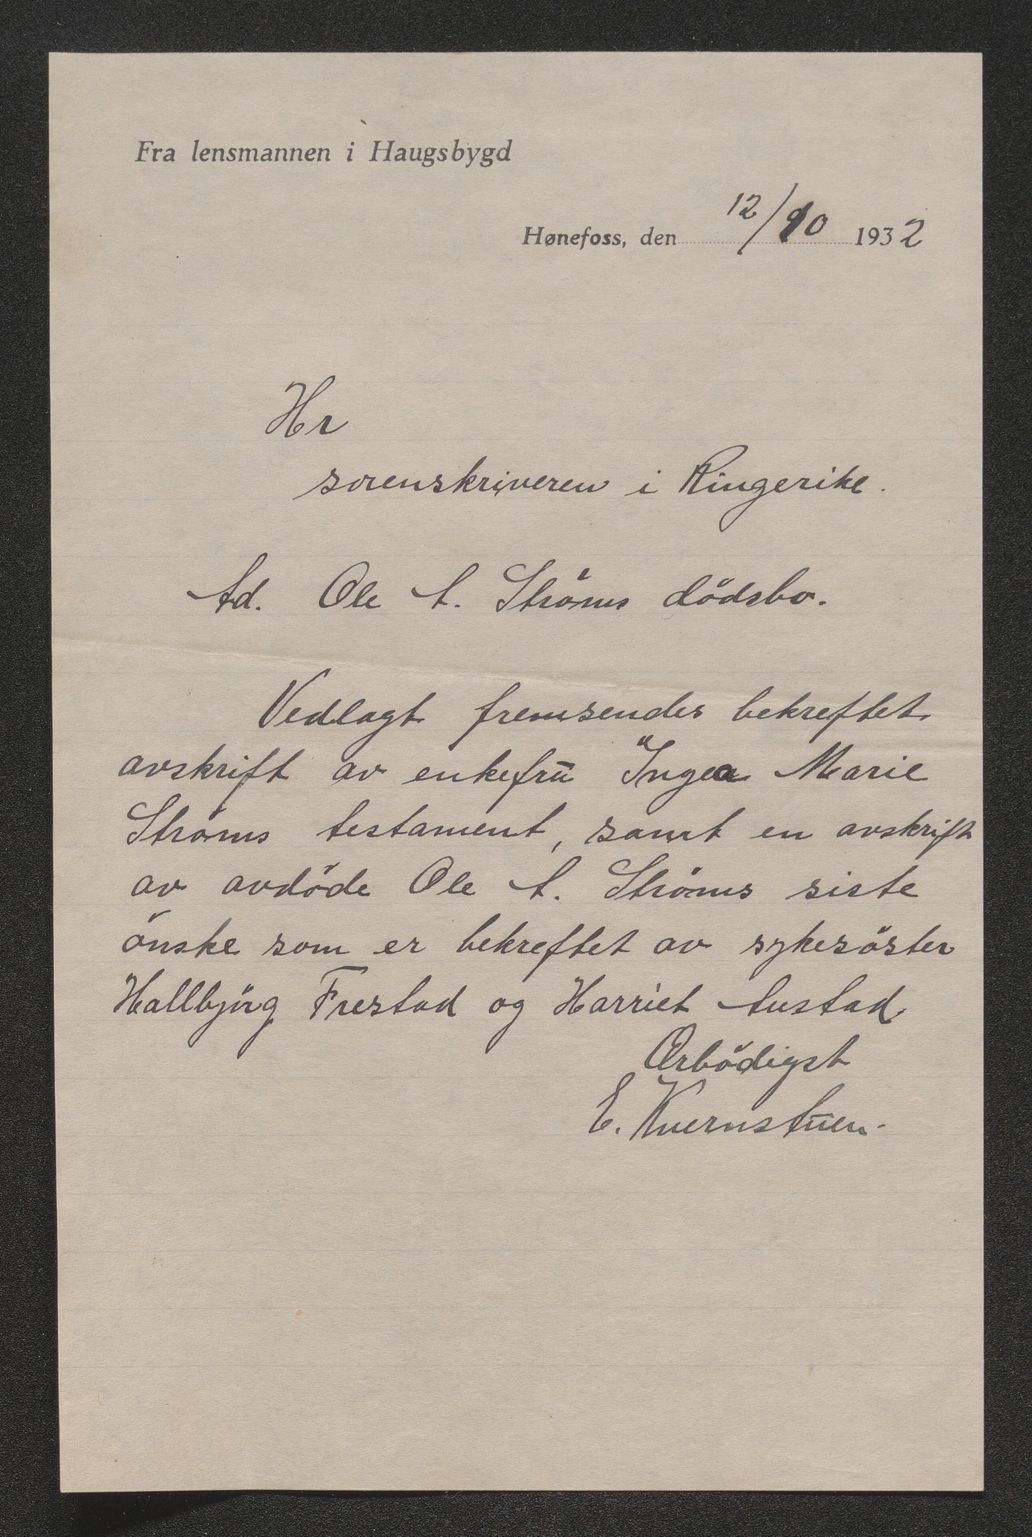 Fra lensmannen i Haugsbygd
Hønefoss, den 12/10 1932
Hr
sorenskriveren i Ringerike.
Ad. Ole A. Ströms dödsbo.
Vedlagt fremsendes bekreftet
avskrift av enkefru Ingea Marie
Ströms testament, samt en avskrift
av avdöde Ole A. Ströms siste
önske som er bekreftet av sykesöster
Hallbjörg Frestad og Harriet Austad
Ærbödigst
E. Kvernstuen.